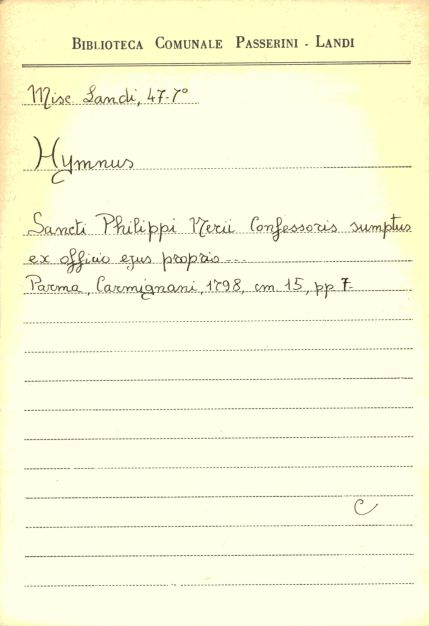 BIBLIOTECA COMUNALE PASSERINI - LANDI
Misc Landi, 47-7°
Hymnus
Sancti Philippi Nerii Confessoris sumptus
ex officio ejus proprio ---
Parma, Carmignani, 1798, cm 15, pp 7-
C